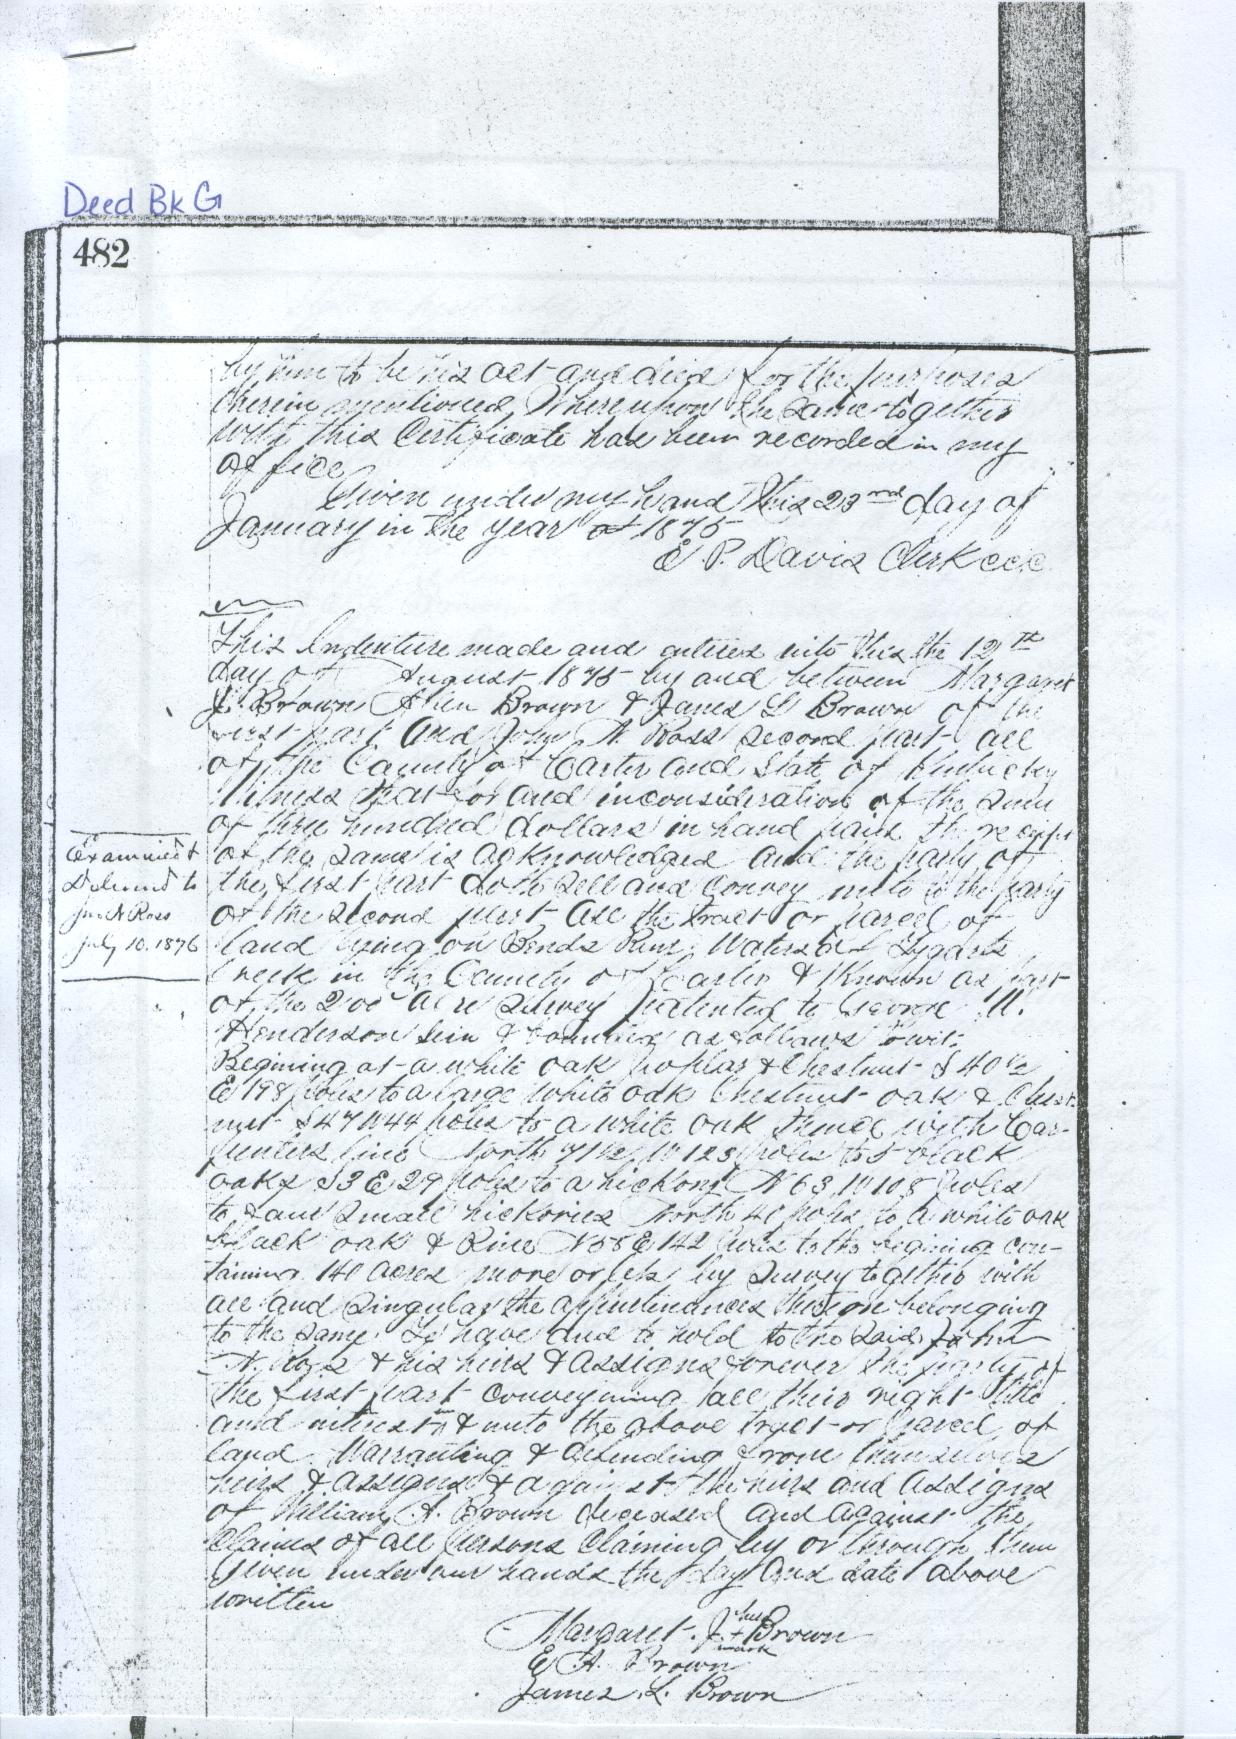 Deed Bk G
482
by him to be his act and deed for the purposes
therein mentioned, Whereupon the same together
with this Certificate has been recorded in my
office
Given under my hand this 23rd day of
January in the year of 1875
E. P. Davis Clerk CCC
This Indenture made and entered into this the 12th
day of August 1875 by and between Margaret
J. Brown Allen Brown & James L Brown of the
First part and John N. Ross second part all
of the County of Carter and State of Kentucky
Witness that for and inconsideration of the sum
of three hundred dollars in hand paid the receipt
of the same is acknowledged and the party of
the first part doth sell and Convey unto to the party
of the second part all the tract or parcel of
land lying on Bends Run Waters of Tygarts
Creek in the County of Carter & Known as part
of the 200 acre survey patented to George N.
Henderson & bounded as follows towit:
Begining at a white oak poplar & Chestnut S 40½
E 198 poles to a large white oak Chestnut oak & Chest
nut S 47 W 44 poles to a white oak thence with Car-
penters line North 71½ W 123 poles to 3 black
oaks S 3 E 29 poles to a hickory N 63 W 108 poles
to four small hickories North 40 poles to a white oak
black oak & Pine N 58 E 142 poles to the begining con-
taining 140 acres more or less by survey together with
all and singular the appurtenances thereon belonging
to the same To have and to hold to the said John
N. Ross & his heirs & assigns forever the party of
the first part conveyining all their right title
and interest in & unto the above tract or parcel of
land Warranting & defending from themselves
heirs & assigns & against the heirs and assigns
of William A. Brown deceased and against the
Claims of all persons claiming by or through them
Given under our hands the day and date above
written
Margaret J. her + mark Brown
E A. Brown
James L. Brown
Examined &
Delivered to
Jno N Ross
July 10, 1876